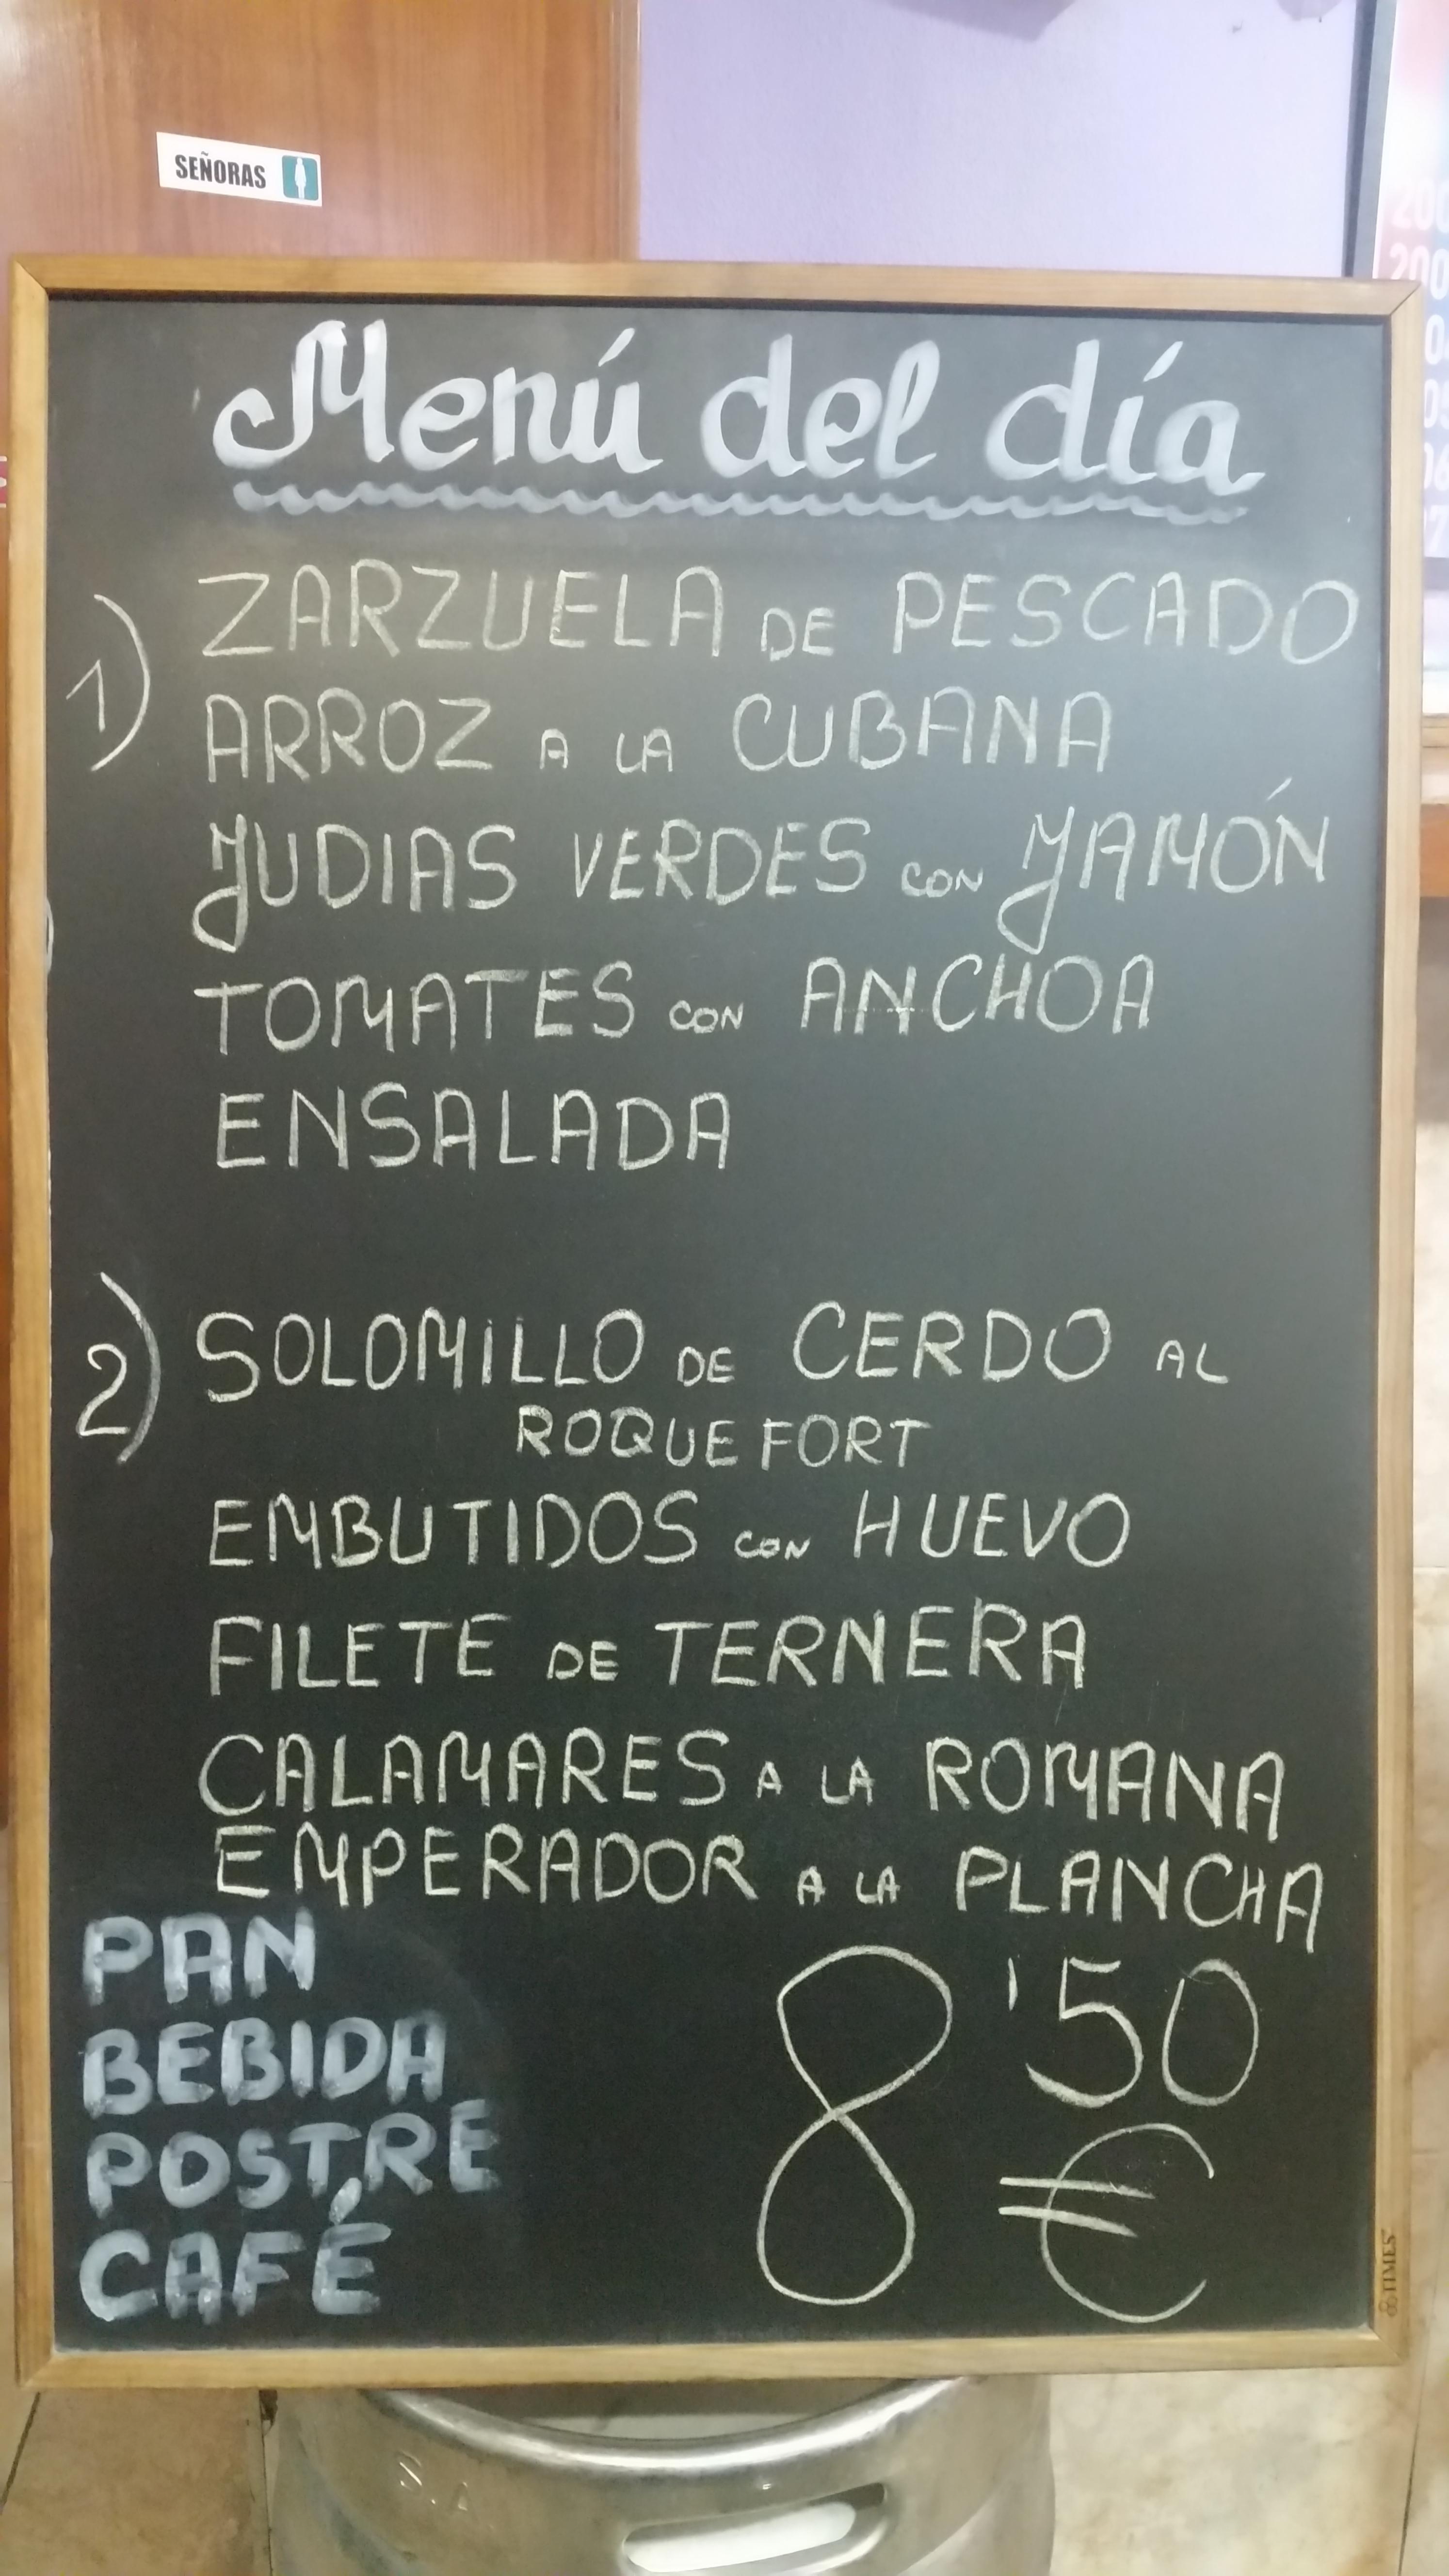 SEÑORAS
Menú del día
1)
ZARZUELA DE PESCADO
ARROZ A LA CUBANA
JUDIAS VERDES CON JAMÓN
TOMATES CON ANCHOA
ENSALADA
2)
SOLOMILLO DE CERDO AL
ROQUEFORT
EMBUTIDOS CON HUEVO
FILETE DE TERNERA
CALAMARES A LA ROMANA
EMPERADOR A LA PLANCHA
PAN
BEBIDA
POSTRE
CAFÉ
8'50
€
TIMES
S.A